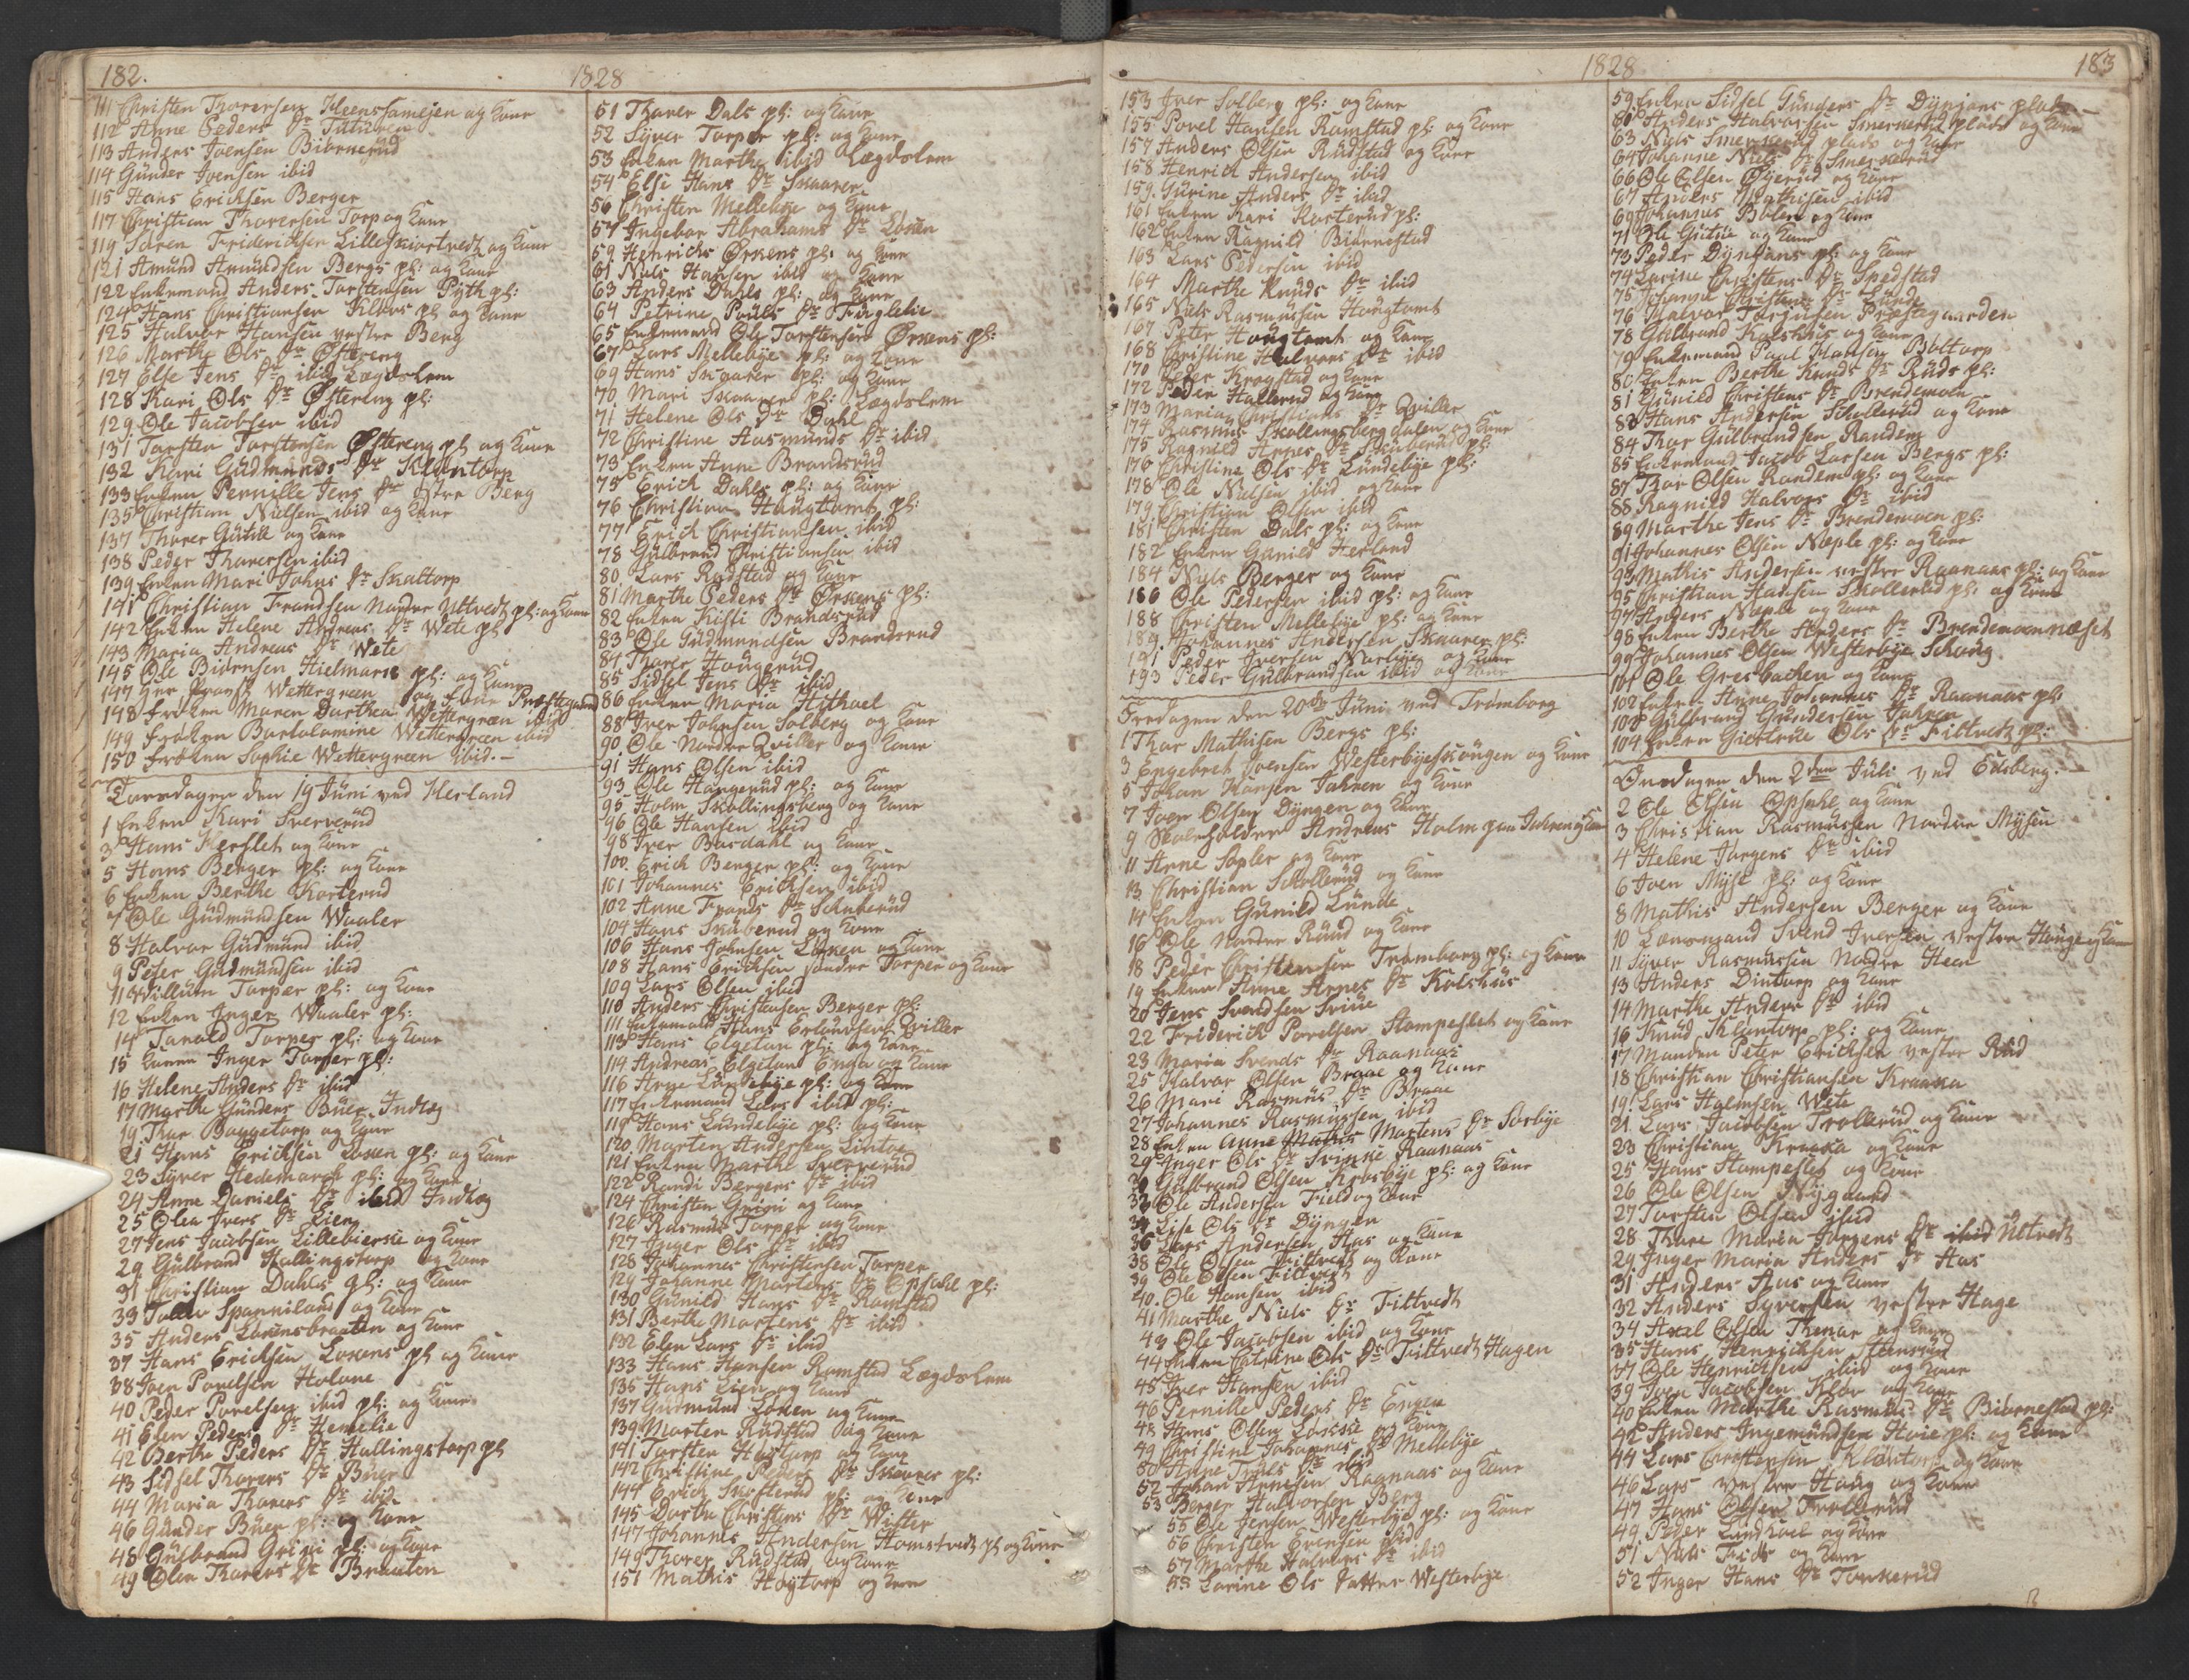 182.
1828
111 Christen Thorersen Heensfameien og Kone
112 Anne Peders Dr Tuturen
113 Anders Joensen Biørnerud
114 Gunder Joensen ibid
115 Hans Ericksen Berger
117 Christian Thorersen Torp og Kone
119 Søren Friderichsen Lilleskiortvedt og Kone
121 Amund Amundsen Bergs pl: og Kone
122 Enkemand Anders Torstensen Pyth pl:
124 Hans Christiansen Kilkers pl og Kone
125 Halvor Hansen vestre Berg
126 Marthe Ols Dr Østereng
127 Else Jens Dr ibid Lægdslem
128 Kari Ols Dr Østereng pl:
129 Ole Jacobsen ibid
131 Torsten Torstensen Østereng pl og Kone
132 Kari Gudmunds Dr Kløntorp
133 Enken Pernille Jens Dr østre Berg
135 Christian Nielsen ibid og Kone
137 Thorer Gutue og Kone
138 Peder Thorersen ibid
139 Enken Mari Johns Dr Skaltorp
141 Christian Frandsen Nordre Ultvedt pl: og Kone
142 Enken Helene Andreas Dr Wete pl
143 Maria Andreas Dr Wete
145 Ole Biørnsen Hielmark pl: og Kone
147 Herr Provst Wettergreen og Frue Præstegaard
148 Frøken Maren Dorthea Wettergreen ibid
149 Frøken Bartolomine Wettergreen ibid
150 Frøken Sophie Wettergreen ibid.
Torsdagen den 19 Juni ved Herland
1 Enken Kari Sververud
3 Hans Herslet og Kone
5 Hans Berger pl: og Kone
6 Enken Berthe Korterud
7 Ole Gudmundsen Waaler
8 Halvor Gudmund ibid
9 Peter Gudmundsen ibid
11 Willum Torper pl: og Kone
12 Enken Inger Waaler pl:
14 Tarald Torper pl: og Kone
15 Konen Inger Torper pl:
16 Helene Anders Dr ibid
17 Marthe Gunders Buer Indlæg
19 Thor Baggetorp og Kone
21 Hans Ericksen Løsen pl: og Kone
23 Syver Hedemarck pl: og Kone
24 Anne Daniels Dr ibid Indlæg
25 Olea Ivers Dr Lien
27 Jens Jacobsen Lillebierke og Kone
29 Gulbrand Hallingstorp og Kone
31 Christian Dahls pl: og Kone
33 Tollev Spanniland og Kone
35 Anders Løkensbraaten og Kone
37 Hans Ericksen Løkens pl og Kone
38 Joen Povelsen Holone
40 Peder Povelsen ibid pl: og Kone
41 Elen Peders Dr Hemelie
42 Berthe Peders Dr Hallingstorp pl
43 Sidsel Thorers Dr Buer
44 Maria Thorers Dr ibid
46 Gunder Buer pl: og Kone
48 Gulbrand Grini pl: og Kone
49 Olea Thorers Dr Braaten
51 Thorer Dals pl: og Kone
52 Syver Torper pl: og Kone
53 Enken Marthe ibid Lægdslem
54 Else Hans Dr Skaarer
56 Christen Mellebye og Kone
57 Ingebor Abrahams Dr Løken
59 Henrichs Ørkens pl: og Kone
61 Niels Hansen ibid og Kone
63 Anders Dahls pl: og Kone
64 Petrine Pouls Dr Fuglelie
65 Enkemand Ole Torstensen Ørkens pl:
67 Lars Mellebye pl: og Kone
69 Hans Skaarer pl: og Kone
70 Mari Skaarer pl: Lægdslem
71 Helene Ols Dr Dahl
72 Christine Aasmunds Dr ibid
73 Enken Anne Brandsrud
75 Erich Dahls pl: og Kone
76 Christian Haugtomt pl:
77 Erich Christiansen ibid
78 Gulbrand Christiansen ibid
80 Lars Rødstad og Kone
81 Marthe Peders Dr Ørkens pl:
82 Enken Kisti Brandsrud
83 Ole Gudmundsen Brandsrud
84 Thorer Haugerud
85 Sidsel Jens Dr ibid
86 Enken Maria Hithael
88 Iver Johnsen Solberg og Kone
90 Ole Nordre Qviller og Kone
91 Hans Olsen ibid
93 Ole Haugerud pl: og Kone
95 Holm Skollingsberg og Kone
96 Ole Hansen ibid
98 Iver Bardahl og Kone
100. Erich Berger pl: og Kone
101 Johannes Ericksen ibid
102 Anne Frands Dr Schuberud
104 Hans Skuberud og Kone
106 Hans Johnsen Løken og Kone
108 Hans Ericksen søndre Torper og Kone
109 Lars Olsen ibid
110 Anders Christiansen Berger pl:
111 Enkemand Hans Erlandsen Qviller
113 Hans Elgetun pl: og Kone
114 Andreas Elgetun Enga og Kone
116 Arne Lundebye pl: og Kone
117 Enkemand Lars ibid pl:
119 Hans Lundebye pl: og Kone
120 Morten Andersen Lintoe
121 Enken Marthe Sververud
122 Randi Bergers Dr ibid
124 Christen Grini og Kone
126 Rasmus Torper og Kone
127 Inger Ols Dr ibid
128 Johannes Christensen Torper
129 Johanne Mortens Dr Opsahl pl:
130 Gunild Hans Dr Ramstad
131 Berthe Mortens Dr ibid
132 Elen Lars Dr ibid
133 Hans Hansen Ramstad Lægdslem
135 Hans Lien og Kone
137 Gudmund Løken og Kone
139 Morten Rudstad og Kone
141 Torsten Høytorp og Kone
142 Christine Peders Dr Skaarer pl:
144 Erich Skofterud pl: og Kone
145 Dorthe Christens Dr Wister
147 Johannes Andersen Homstvedt pl og Kone
149 Thorer Rudstad og Kone
151 Mathis Høytorp og Kone
1828
183
153 Iver Solberg pl: og Kone
155 Povel Hansen Ramstad pl: og Kone
157 Anders Olsen Rudstad og Kone
158 Henrich Andersen ibid
159 Gurine Anders Dr ibid
161 Enken Kari Korterud pl:
162 Enken Ragnild Biørnestad
163 Lars Pedersen ibid
164 Marthe Knuds Dr ibid
165 Niels Rasmussen Haugtomt
167 Peter Haugtomt og Kone
168 Christine Halvors Dr ibid
170 Peder Krogstad og Kone
172 Peder Hallerud og Kone
173 Maria Christians Dr Qviller
174 Rasmus Skollingsberg dalen og Kone
175 Ragnild Arnes Dr Skuberud pl:
176 Christine Ols Dr Lundebye pl:
178 Ole Nielsen ibid og Kone
179 Christian Olsen ibid
181 Christen Dals pl: og Kone
182 Enken Gunild Herland
184 Niels Berger og Kone
186 Ole Pedersen ibid pl: og Kone
188 Christen Mellebye pl: og Kone
189 Johannes Andersen Skaarer pl:
191 Peder Iversen Narbye og Kone
193 Peder Gulbrandsen ibid og Kone
Fredagen den 20de Juni ved Trømborg
1 Thor Mathisen Bergs pl:
3 Engebret Joensen Westerbyeskougen og Kone
5 Johan Hansen Jahren og Kone
7 Joen Olsen Dyngen og Kone
9 Skoleholder Andreas Holm paa Jahren og Kone
11 Arne Sopler og Kone
13 Christian Schollerud og Kone
14 Enken Gunild Lunde
16 Ole Nordre Ruud og Kone
18 Peder Christensen Trømborg pl: og Kone
19 Enken Anne Arnes Dr Kolshus
20 Jens Svendsen Sviue
22 Friderich Povelsen Stampeslet og Kone
23 Maria Svends Dr Raanaas
25 Halvor Olsen Braae og Kone
26 Mari Rasmus Dr Braae
27 Johannes Rasmussen ibid
28 Enken Anne Mathis Mortens Dr Sørbye
29 Inger Ols Dr Svinne Raanaas
31 Gulbrand Olsen Krosbye pl: og Kone
33 Ole Andersen Field og Kone
34 Lise Ols Dr Dyngen
36 Lars Andersen Aas og Kone
38 Ole Olsen Filtvedt og Kone
39 Ole Olsen Filtvedt
40 Ole Hansen ibid
41 Marthe Niels Dr Filtvedt
43 Ole Jacobsen ibid og Kone
44 Enken Catrine Ols Dr Filtvedt Hagen
45 Iver Hansen ibid
46 Pernille Peders Dr Engen
48 Hans Olsen Løssie og Kone
49 Christine Johannes Dr Mellebye
50 Anne Truls Dr ibid
52 Johan Arnesen Raanaas og Kone
53 Berger Halvorsen Berg
55 Ole Jensen Westerbye pl: og Kone
56 Christen Evensen ibid
57 Marthe Halvors Dr ibid
58 Karine Ols Datter Westerbye
59 Enken Sidsel Gunders Dr Dynjans plads
61 Anders Halvorsen Smerkerud plads og Kone
63 Niels Smerkerud plads og Kone
64 Johanne Niels Dr Smerkerud
66 Ole Olsen Øyerud og Kone
67 Anders Mathisen ibid
69 Johannes Bølen og Kone
71 Ole Gutue og Kone
73 Peder Dynjans pl: og Kone
74 Karine Christens Dr Spedstad
75 Johanne Christens Dr Lunde
76 Halvor Torgusen Præstegaarden
78 Gulbrand Kolshus og Kone
79 Enkemand Paul Hansen Boltorp
80 Enken Berthe Knuds Dr Ruds pl:
81 Gunild Christens Dr Brendemoen
83 Hans Andersen Schollerud og Kone
84 Thor Gulbrandsen Randem
85 Enkemand Jacob Larsen Bergs pl:
87 Thor Olsen Randem pl: og Kone
88 Ragnild Halvors Dr ibid
89 Marthe Jens Dr Brendemoen pl:
91 Johannes Olsen Næple pl: og Kone
93 Mathis Andersen vestre Raanaas pl: og Kone
95 Christian Hansen Skollerud pl: og Kone
97 Anders Næple og Kone
98 Enken Berthe Anders Dr Brendemoennæset
99 Johannes Olsen Westerbye Schoug
101 Ole Gresbacken og Kone
102 Enken Anne Johannes Dr Raanaas pl:
103 Gulbrand Gundersen Jahren
104 Enken Giertrue Ols Dr Filtvedt pl:
Onsdagen den 2den Juli ved Edsberg.
2 Ole Olsen Opsahl og Kone
3 Christian Rasmussen Nordre Mysen
4 Helene Jørgens Dr ibid
6 Joen Myse pl: og Kone
8 Mathis Andersen Berger og Kone
10 Lensmand Svend Iversen vestre Houge og Kone
11 Syver Rasmussen Nodre Heen
13 Anders Dintorp og Kone
14 Marthe Anders Dr ibid
16 Knud Kløntorp pl: og Kone
17 Manden Peter Ericksen vestre Rud
18 Christian Christiansen Kraaka
19 Lars Halmsen Wete
21 Lars Jacobsen Trollerud og Kone
23 Christian Kraaka og Kone
25 Hans Stampeslet og Kone
26 Ole Olsen Nygaard
27 Torsten Olsen ibid
28 Thore Maria Jørgens Dr ibid Ultvedt
29 Inger Maria Anders Dr Aas
31 Anders Aas og Kone
32 Anders Syversen vestre Hage
34 Axel Olsen Thenor og Kone
35 Hans Henrichsen Steensrud
37 Ole Henrichsen ibid og Kone
39 Joen Jacobsen Kløv og Kone
40 Enken Marthe Rasmus Dr Biørnestad pl:
42 Anders Ingemundsen Hoie pl: og Kone
44 Lars Christensen Kløntorp og Kone
46 Lars vestre Houg og Kone
47 Hans Olsen Trollerud
49 Peder Lundhoel og Kone
51 Niels Trids og Kone
52 Inger Hans Dr Tonkerud